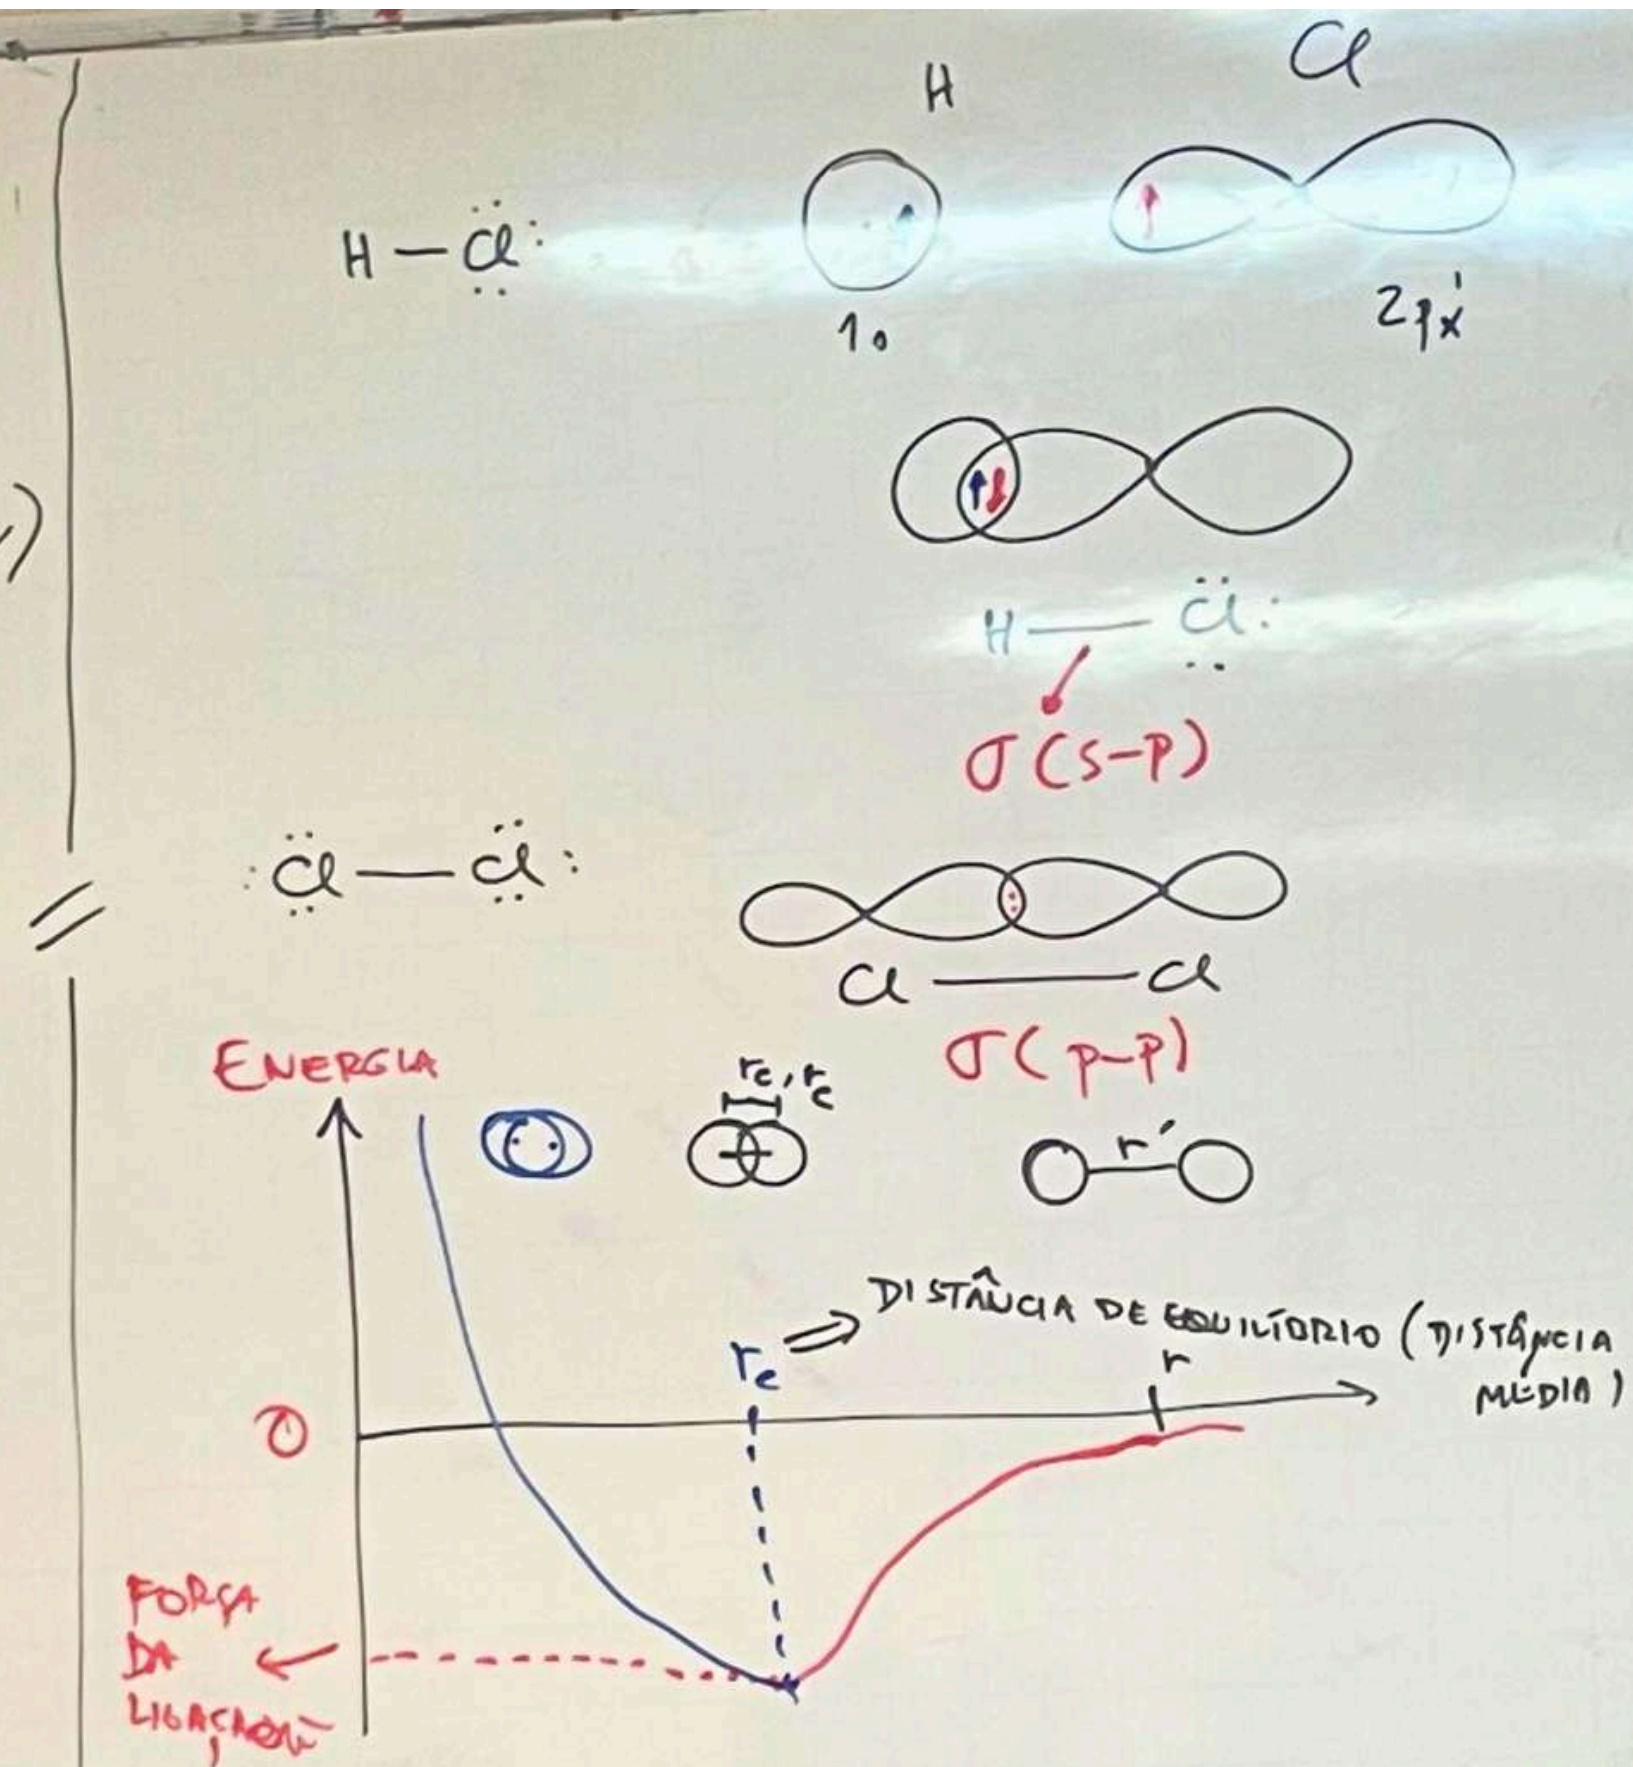 H Cl
H — Cl
1s 2px¹
H — Cl
σ (s-p)
Cl — Cl
Cl — Cl
σ (p-p)
ENERGIA
re, re
r'
re ⇒ DISTÂNCIA DE EQUILÍBRIO (DISTÂNCIA
MÉDIA)
r
O
FORÇA
DA ←